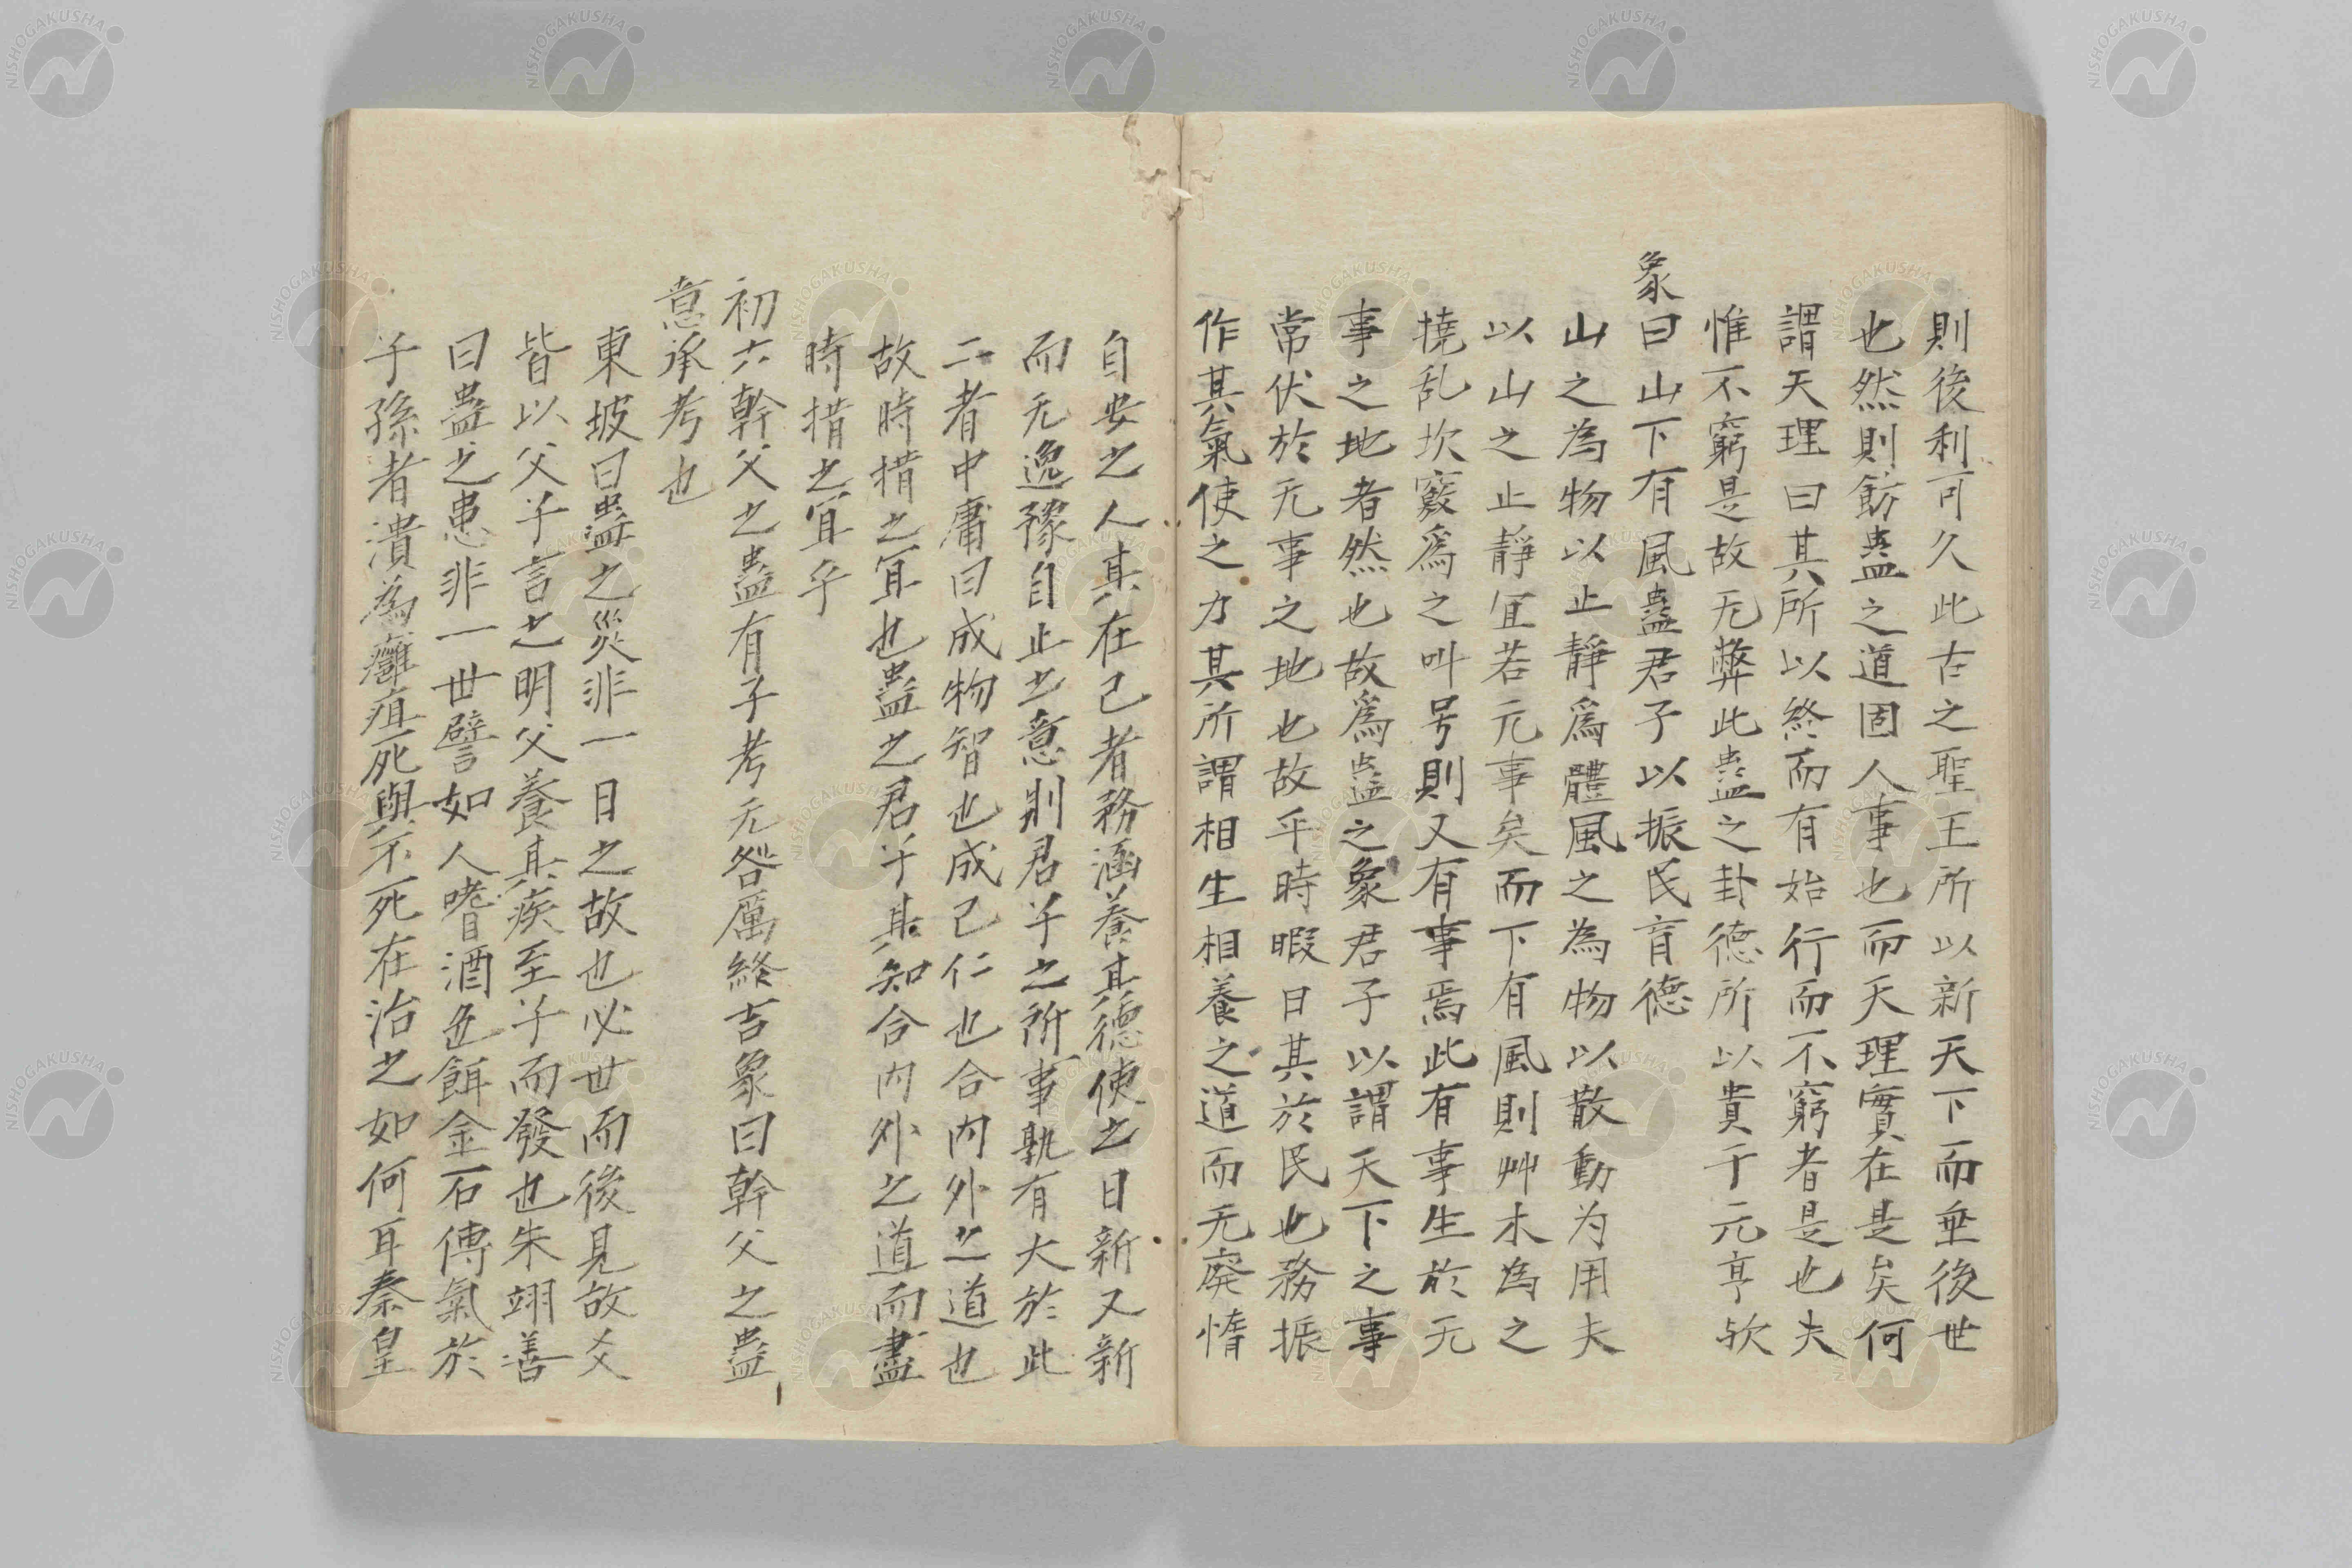 則後利可久此古之聖王所以新天下而垂後世
也然則飭蠱之道固人事也而天理實在是矣何
謂天理曰其所以終而有始行而不窮者是也夫
惟不窮是故无弊此蠱之卦德所以貴于元亨欤
象曰山下有風蠱君子以振民育德
山之為物以止靜爲體風之為物以散動为用夫
以山之止靜宜若元事矣而下有風則艸木為之
撓乱坎竅爲之叫号則又有事焉此有事生於无
事之地者然也故爲蠱之象君子以謂天下之事
常伏於无事之地也故平時暇日其於民也務振
作其氣使之力其所謂相生相養之道而无廃惰
自安之人其在己者務涵養其德使之日新又新
而无逸豫自止之意則君子之所事孰有大於此
二者中庸曰成物智也成己仁也合内外之道也
故時措之宜也蠱之君子其知合内外之道而盡
時措之宜乎
初六幹父之蠱有子考无咎厲終吉象曰幹父之蠱
意承考也
東坡曰蠱之災非一日之故也必世而後見故爻
皆以父子言之明父養其疾至子而發也朱翊善
曰蠱之患非一世譬如人嗜酒色餌金石傳氣於
子孫者潰為癰疽死與不死在治之如何耳秦皇